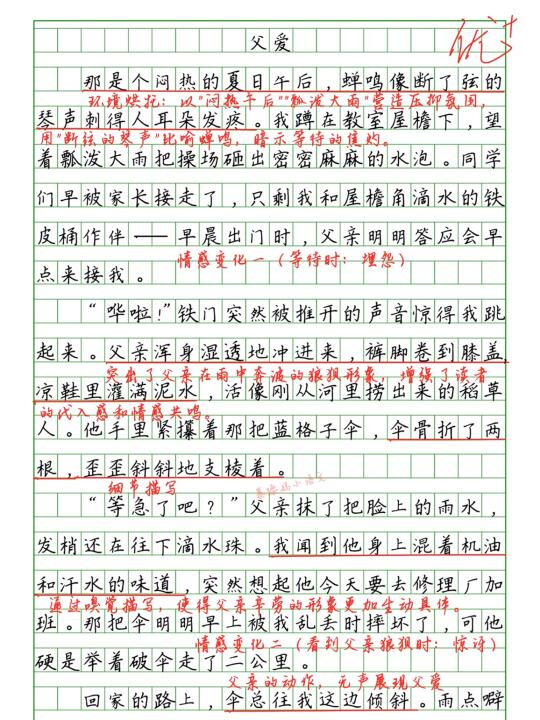 父爱
优+
那是个闷热的夏日午后，蝉鸣像断了弦的
环境烘托：以"闷热午后""瓢泼大雨"营造压抑氛围，
琴声刺得人耳朵发疼。我蹲在教室屋檐下，望
用"断弦的琴声"比喻蝉鸣，暗示等待的焦灼。
着瓢泼大雨把操场砸出密密麻麻的水泡。同学
们早被家长接走了，只剩我和屋檐角滴水的铁
皮桶作伴——早晨出门时，父亲明明答应会早
情感变化一（等待时：埋怨）
点来接我。
“哗啦！”铁门突然被推开的声音惊得我跳
起来。父亲浑身湿透地冲进来，裤脚卷到膝盖，
突出了父亲在雨中奔波的狼狈形象，增强了读者
凉鞋里灌满泥水，活像刚从河里捞出来的稻草
的代入感和情感共鸣。
人。他手里紧攥着那把蓝格子伞，伞骨折了两
根，歪歪斜斜地支棱着。
细节描写
“等急了吧？”父亲抹了把脸上的雨水，
发梢还在往下滴水珠。我闻到他身上混着机油
和汗水的味道，突然想起他今天要去修理厂加
通过嗅觉描写，使得父亲辛劳的形象更加生动具体。
班。那把伞明明早上被我乱丢时摔坏了，可他
情感变化二（看到父亲狼狈时：惊讶）
硬是举着破伞走了二公里。
父亲的动作，无声展现父爱
回家的路上，伞总往我这边倾斜。雨点噼